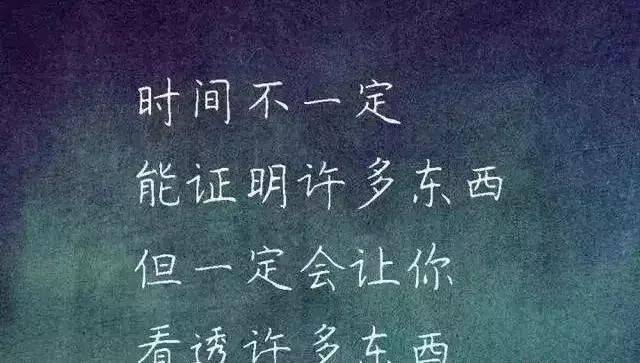 时间不一定
能证明许多东西
但一定会让你
看透许多东西